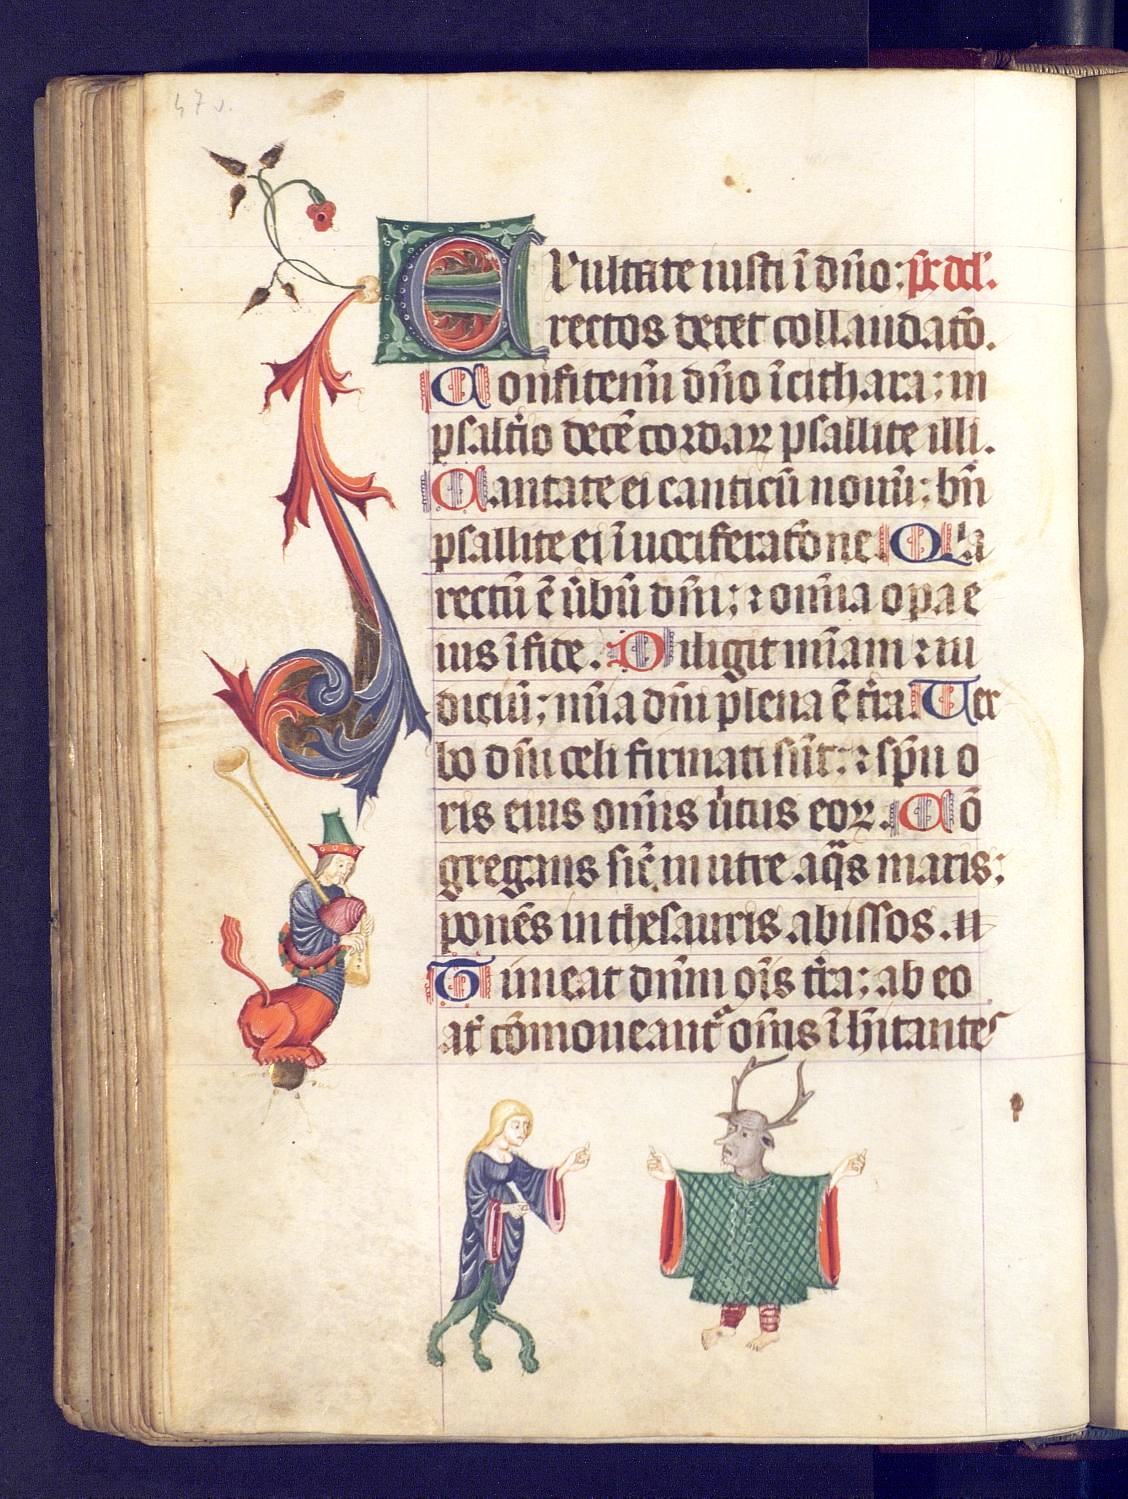 47v.
EXultate iusti ī dño: ps dd.
rectos decet collaudatō.
Confitemī dño ī cithara; in
psaltīo decē cordaꝝ psallite illi.
Cantate ei canticū nouū: bñ
psallite ei ī uociferatōne. Qia
rectū ē ūbū dñi; ⁊ omīa opa e
ius ī fide. Diligit mīam ⁊ iu
diciū; mīa dñi plena ē tīra. Uer
bo dñi celi firmati sūt: ⁊ spū o
ris eius omīs ūtus eoꝝ. Cō
gregans sič in utre aqͣs maris:
ponēs in thesauris abissos.
Timeat dnm oīs tīra; ab eo
aūt cōmoueantᷣ omīs īhītantes